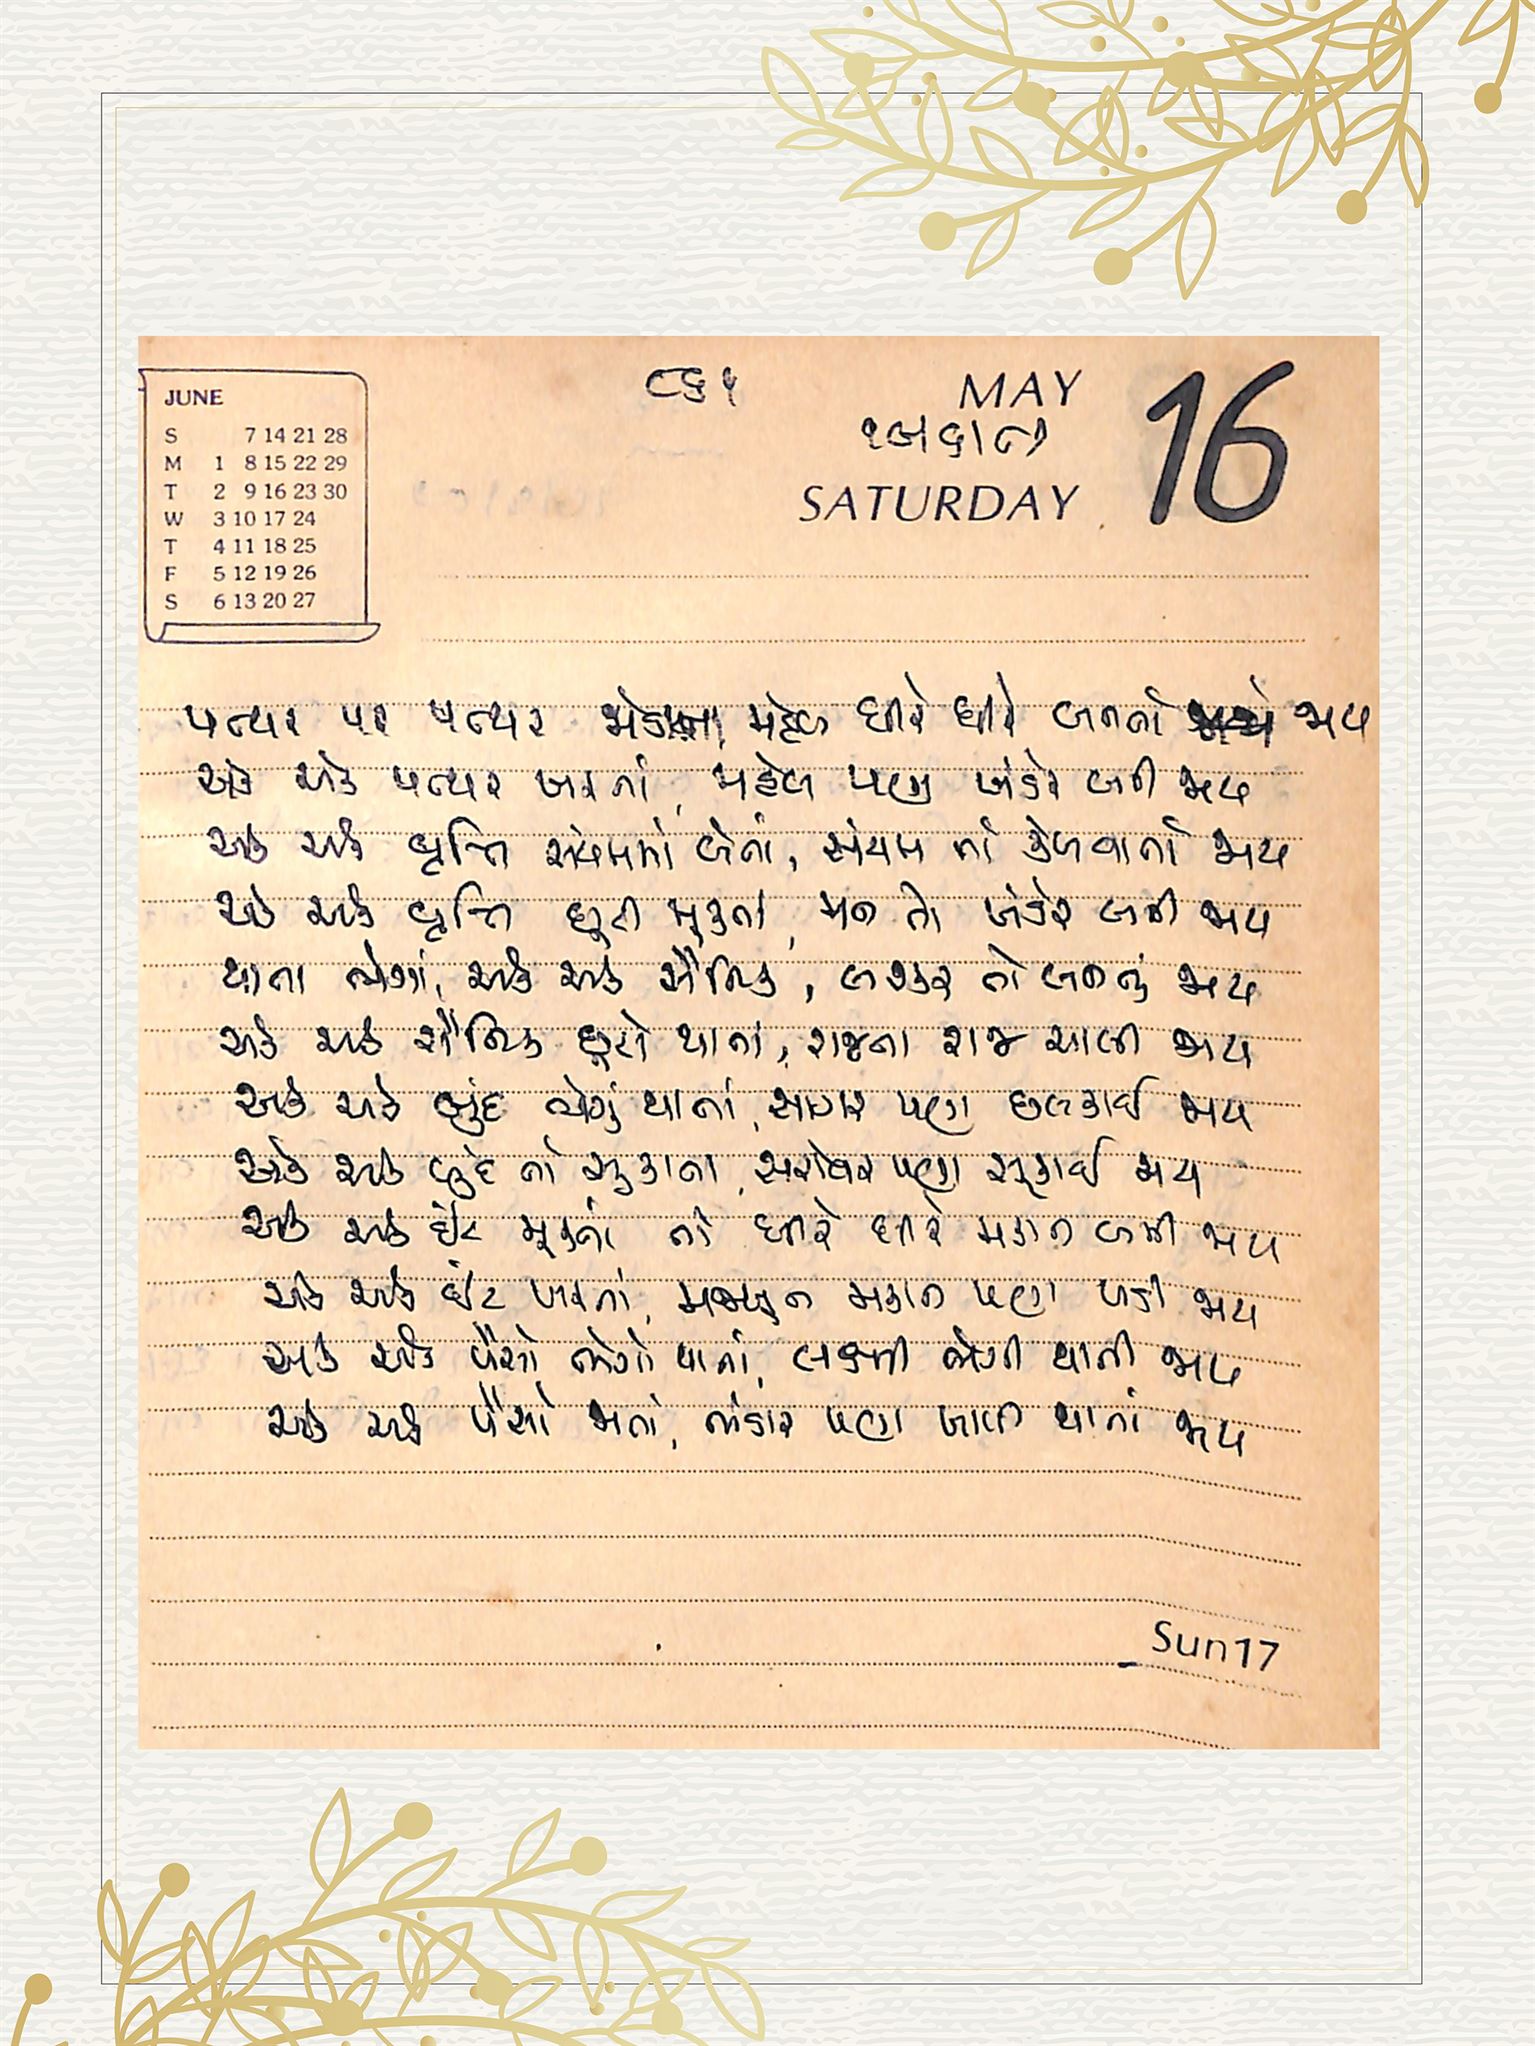 JUNE
S 7 14 21 28
M 1 8 15 22 29
T 2 9 16 23 30
W 3 10 17 24
T 4 11 18 25
F 5 12 19 26
S 6 13 20 27
MAY
SATURDAY
16
પત્થર પર પત્થર મહેલ ધીરે ધીરે બનતો જાય
એક એક પત્થર ખરતાં, મહેલ પણ ખંડેર બની જાય
એક એક વૃત્તિ સંયમમાં લેતાં, સંયમ તો કેળવાતો જાય
એક એક વૃત્તિ છૂટી મૂકતાં, મન તો ખંડેર બની જાય
થાતા ભેગાં, એક એક સૈનિક, લશ્કર તો બનતું જાય
એક એક સૈનિક છૂટો થાતાં, રાજના રાજ ચાલી જાય
એક એક બુંદ ભેગું થાતાં, સાગર પણ છલકાઈ જાય
એક એક બુંદ તો સુકાતા, સરોવર પણ સૂકાઈ જાય
એક એક ઈંટ મૂકતાં તો ધીરે ધીરે મકાન બની જાય
એક એક ઈંટ ખરતાં, મજબુત મકાન પણ પડી જાય
એક એક પૈસો ભેગો થાતાં, લક્ષ્મી ભેગી થાતી જાય
એક એક પૈસો જાતાં, ભંડાર પણ ખાલી થાતાં જાય
Sun17